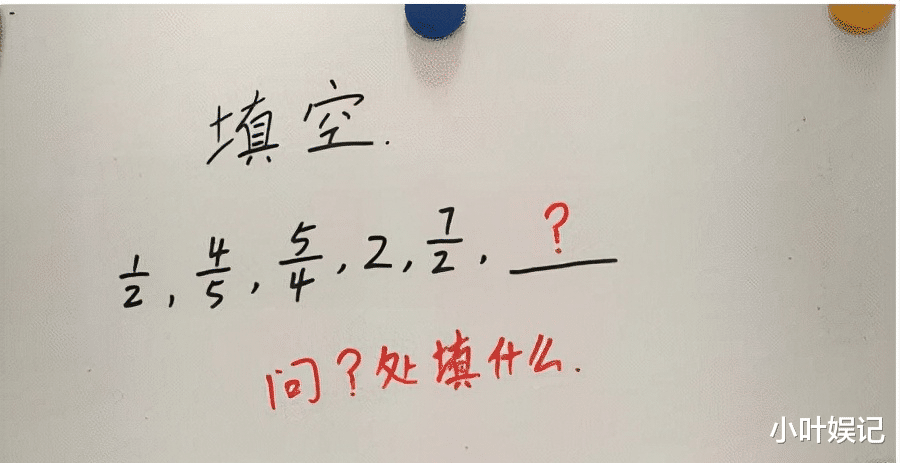 填空.
1/2, 4/5, 5/4, 2, 7/2, ?
问?处填什么.
小叶娱记